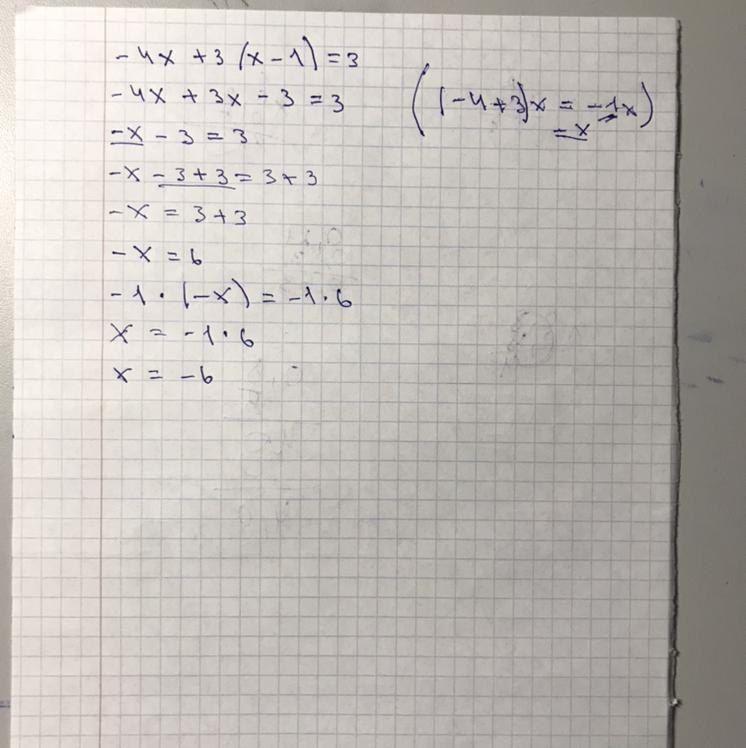 -4x + 3 (x - 1) = 3
-4x + 3x - 3 = 3
-x - 3 = 3
-x - 3 + 3 = 3 + 3
-x = 3 + 3
-x = 6
-1 · (-x) = -1 · 6
x = -1 · 6
x = -6
((-4+3)x = -1x)
= x